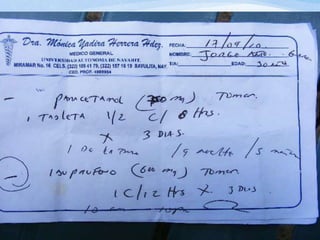 Dra. Mónica Yadira Herrera Hdez.
MEDICO GENERAL
UNIVERSIDAD AUTONOMA DE NAYARIT
MIRAMAR No. 16 CELS. (322) 109 41 79, (322) 157 16 19 SAYULITA, NAY.
CED. PROF. 4989984
FECHA 17/09/20
NOMBRE: JORGE
T/A: EDAD: 30
- PARACETAMOL (750 mg) TOMAR
1 TABLETA 1/2 C/ 8 HRS.
X 3 DIAS.
1 De la / 9 / 5
- IBUPROFENO (600 mg) TOMAR
1 C/12 HRS X 3 DIAS
10 10pm